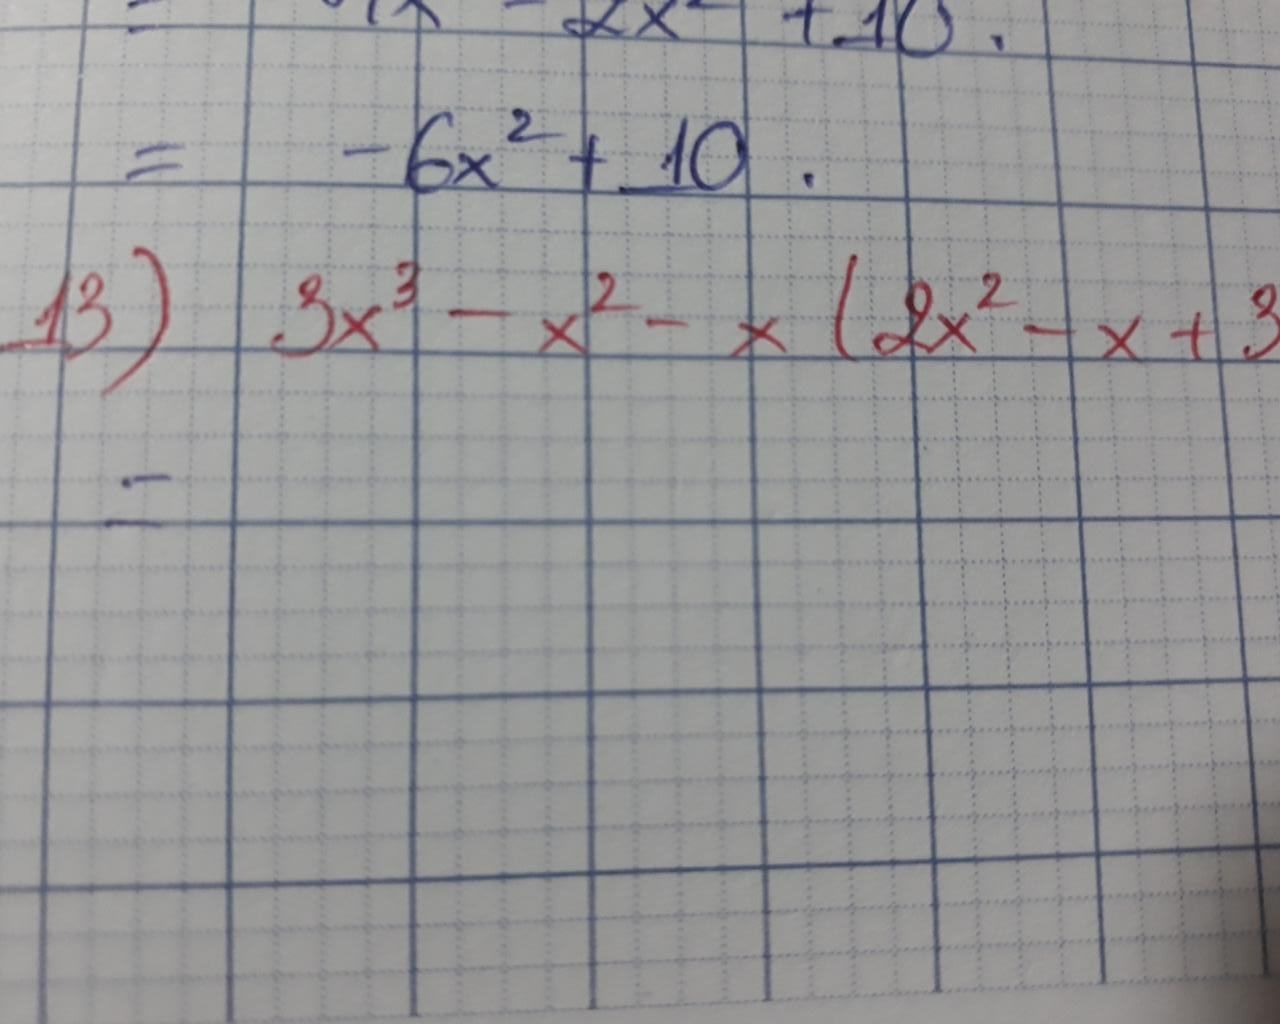 = - 2x² + 10.
= - 6x² + 10.
13) 3x³ - x² - x (2x² - x + 3
=